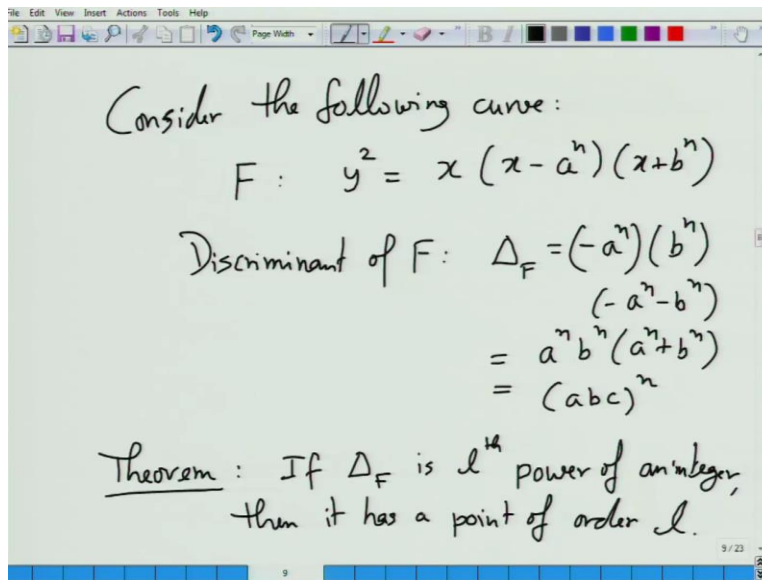 File Edit View Insert Actions Tools Help
Page Width
B I
Consider the following curve:
F : y² = x (x - aⁿ) (x + bⁿ)
Discriminant of F : Δ_F = (-aⁿ)(bⁿ)
(-aⁿ - bⁿ)
= aⁿ bⁿ (aⁿ + bⁿ)
= (abc)ⁿ
Theorem : If Δ_F is lᵗʰ power of an integer,
then it has a point of order l.
9 / 23
9